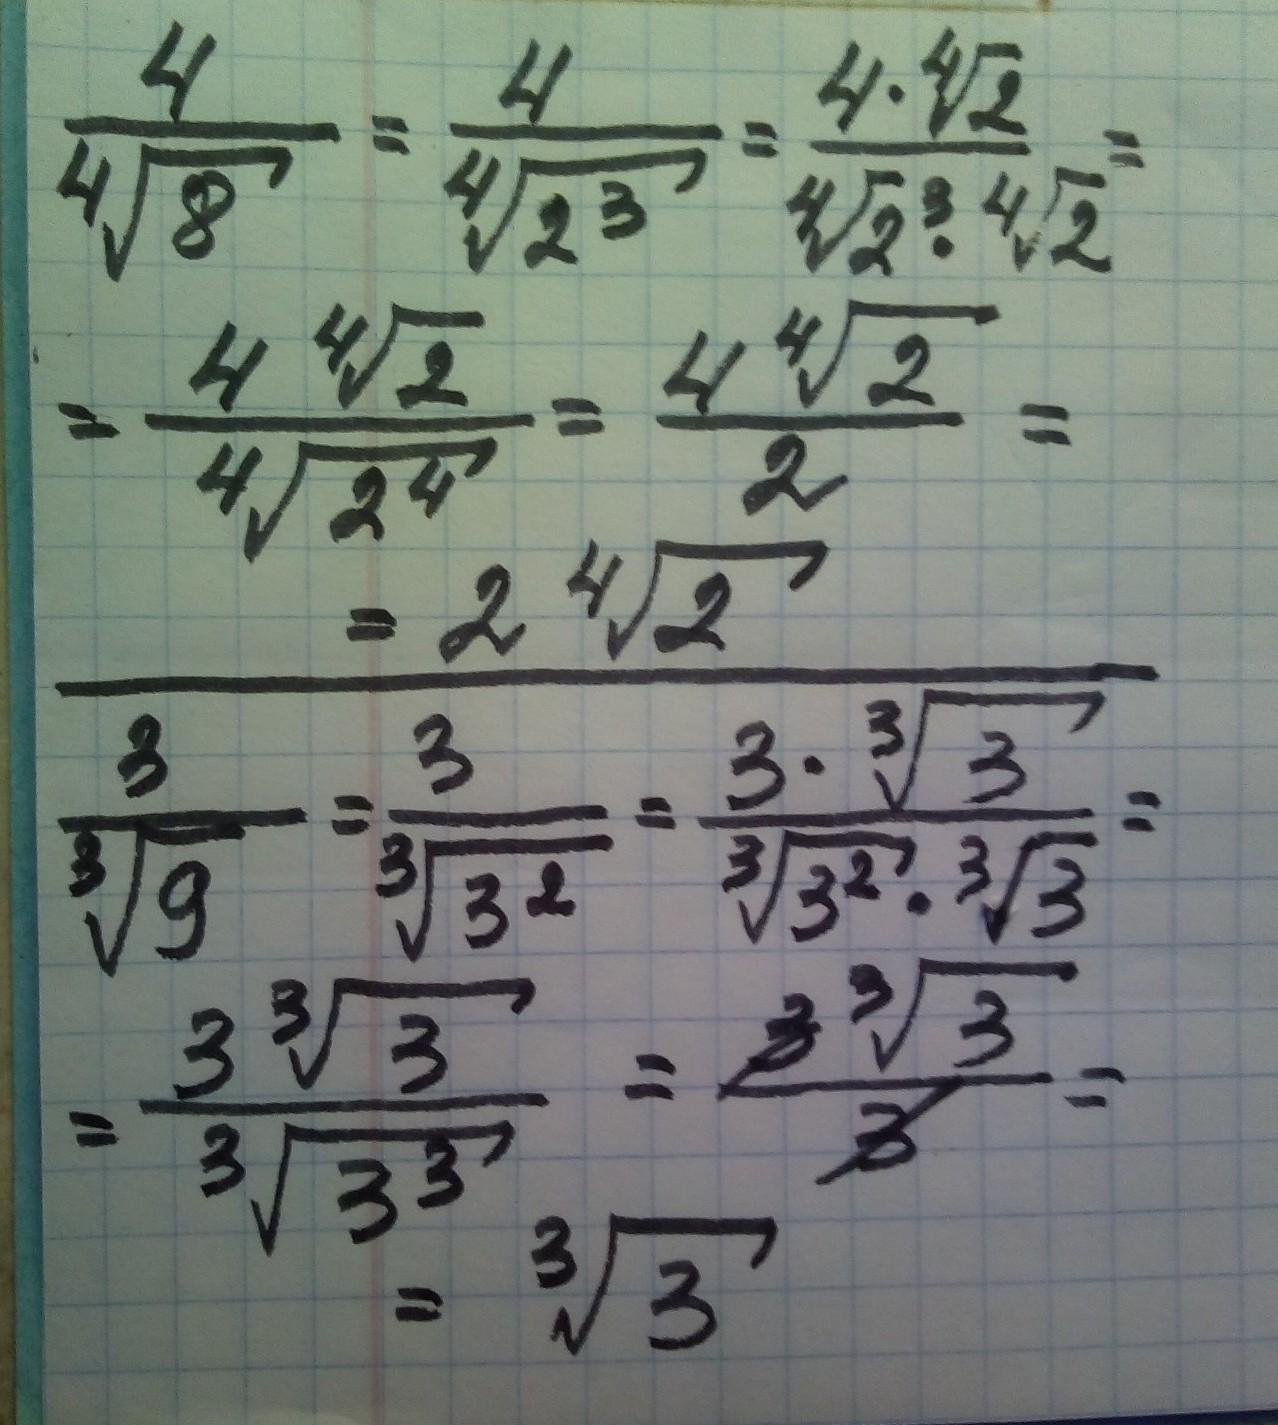 4/⁴√8 = 4/⁴√2³ = 4·⁴√2/⁴√2³·⁴√2 =
= 4 ⁴√2/⁴√2⁴ = 4 ⁴√2/2 =
= 2 ⁴√2
3/³√9 = 3/³√3² = 3·³√3/³√3²·³√3 =
= 3 ³√3/³√3³ = 3 ³√3/3 =
= ³√3